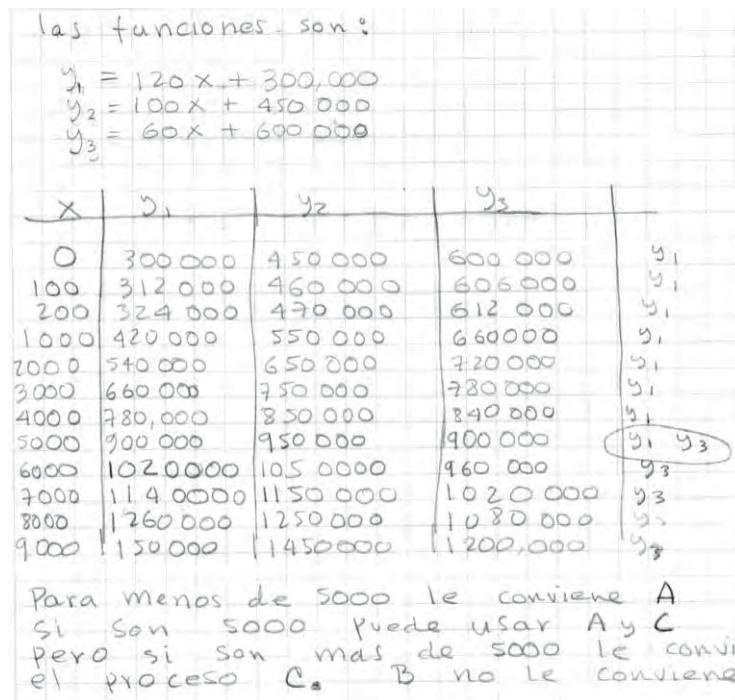 las funciones son:
y₁ = 120x + 300,000
y₂ = 100x + 450 000
y₃ = 60x + 600 000
x y₁ y₂ y₃
0 300 000 450 000 600 000 y₁
100 312 000 460 000 606 000 y₁
200 324 000 470 000 612 000 y₁
1000 420 000 550 000 660000 y₁
2000 540 000 650 000 720 000 y₁
3000 660 000 750 000 780 000 y₁
4000 780,000 850 000 840 000 y₁
5000 900 000 950 000 900 000 y₁ y₃
6000 1020000 105 0000 960 000 y₃
7000 114 0000 1150 000 1020 000 y₃
8000 1260 000 1250 000 1080 000
9000 1150000 1450000 1200,000 y₃
Para menos de 5000 le conviene A
Si son 5000 puede usar A y C
pero si son mas de 5000 le convi
el proceso C. B no le conviene